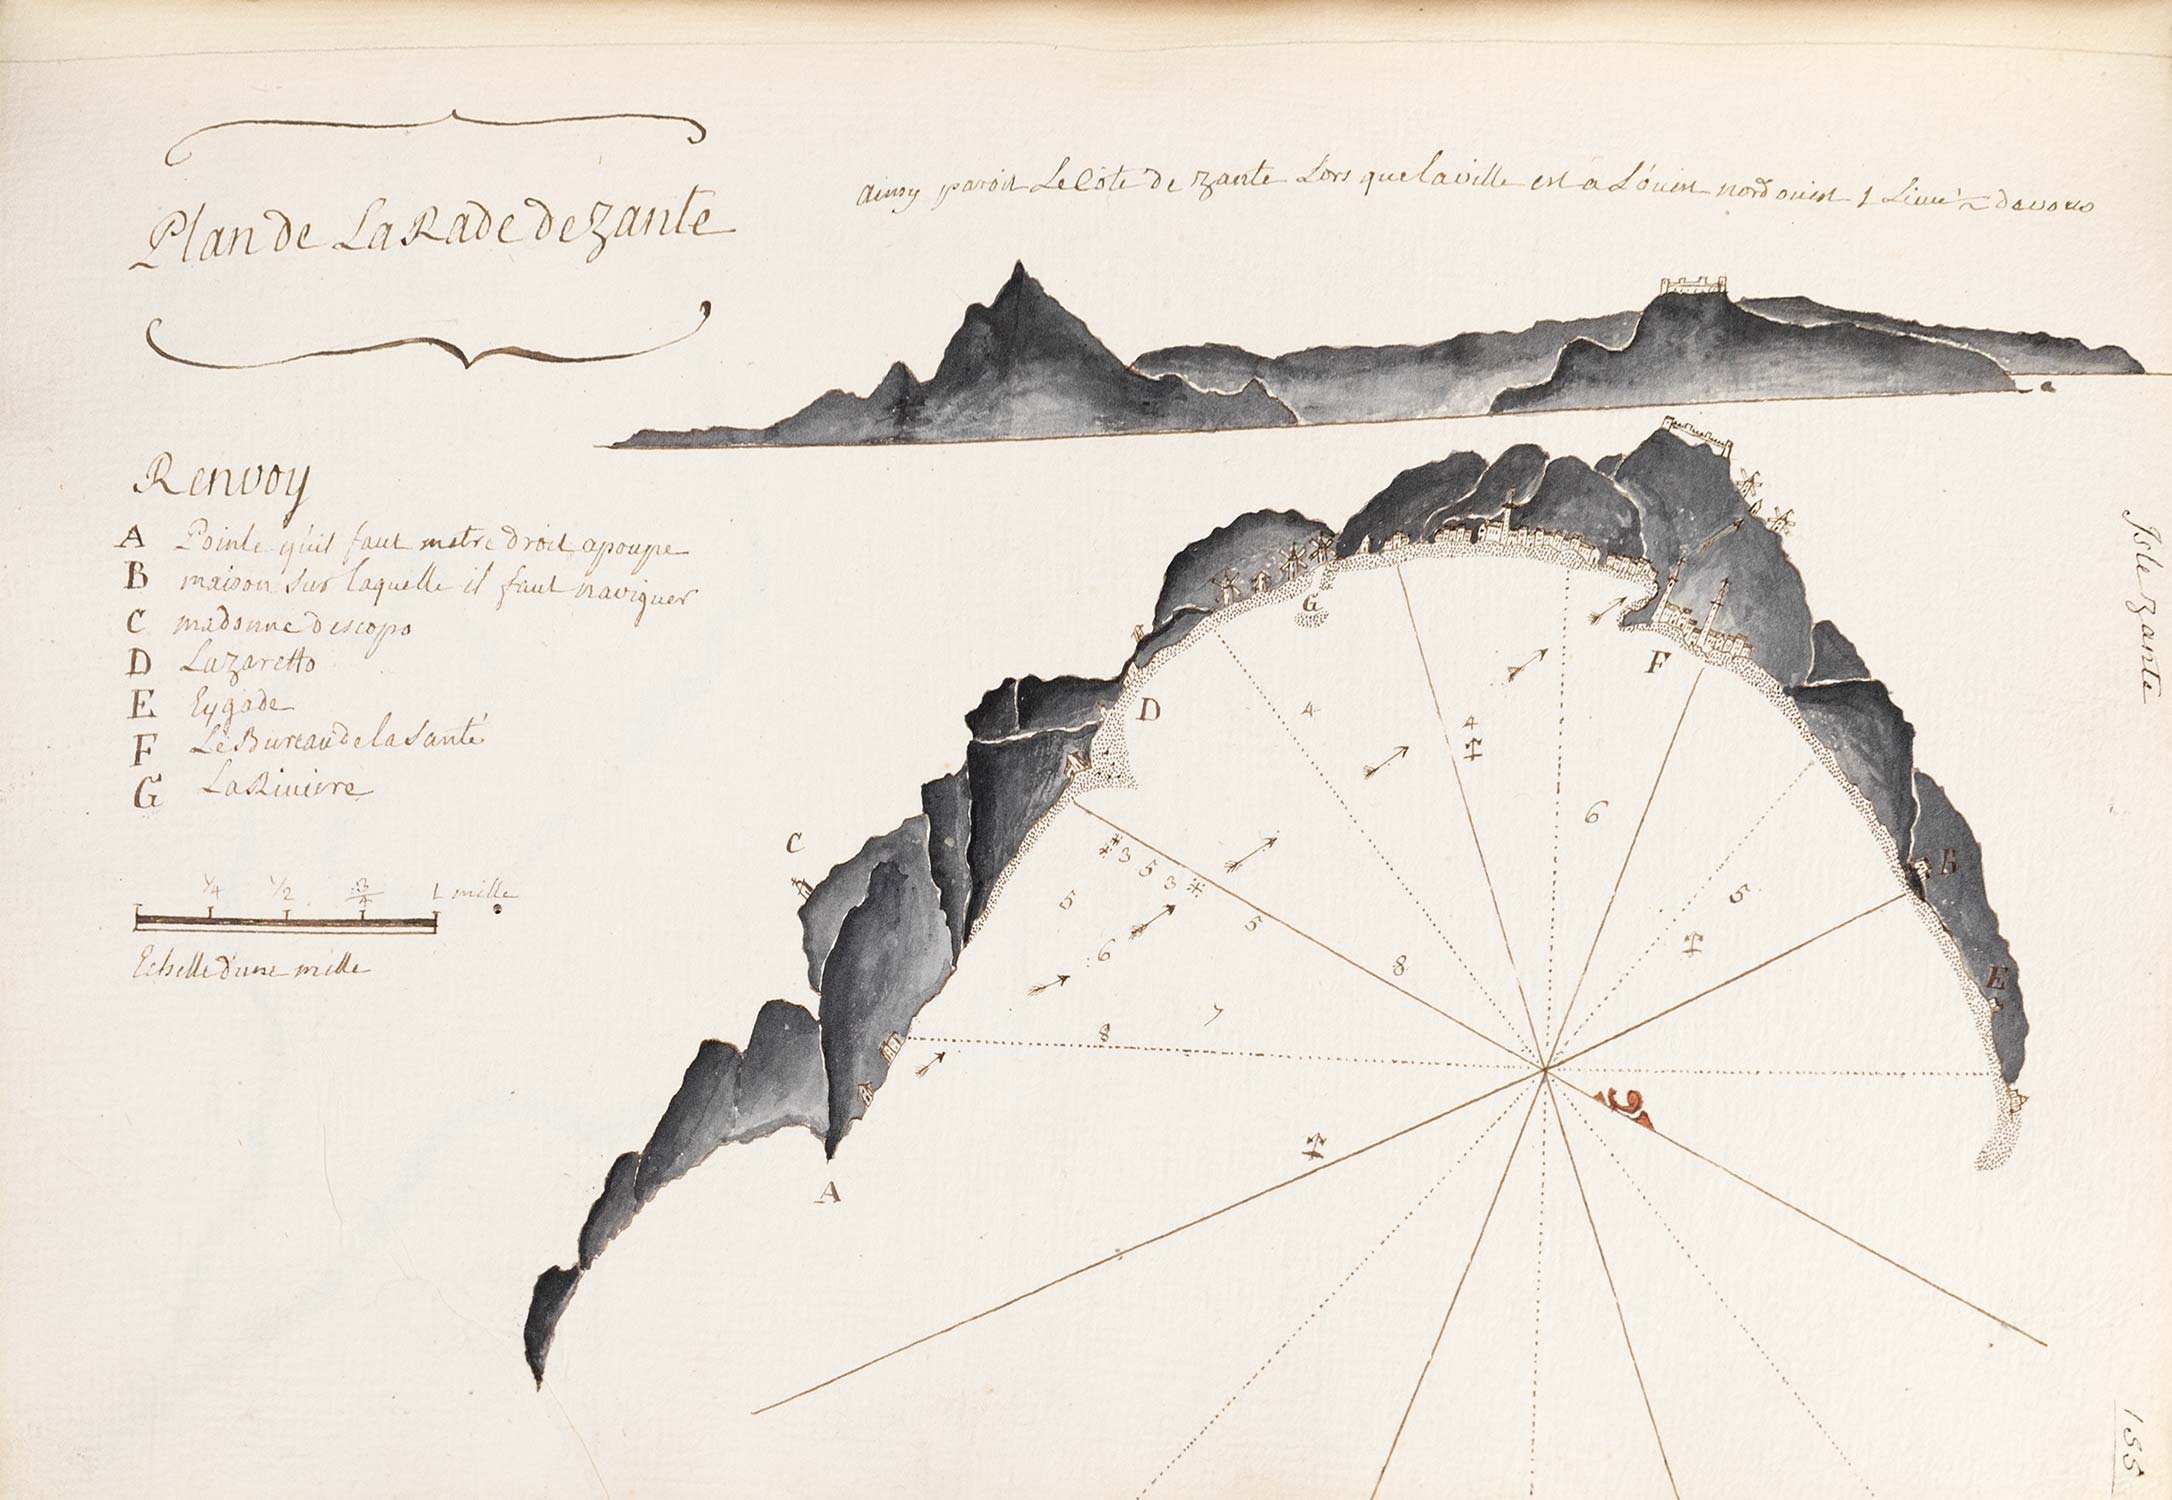 Plan de La Rade de Zante
ainsy paroit Le Côte de Zante Lors que la ville est à L'ouest nord ouest 1 Lieüe ½ de vous
Renvoy
A Pointe qu'il faut metre droit apoupe
B maison sur laquelle il faut naviguer
C madonne descopo
D Lazaretto
E Eygade
F Le Bureau de la Santé
G La Riviere
1/4 1/2 3/4 1 mille
Echelle d'une mille
Isle Zante
G
F
D
4
4
6
C
B
3 5 3
5
5
5
E
6
8
7
8
A
155